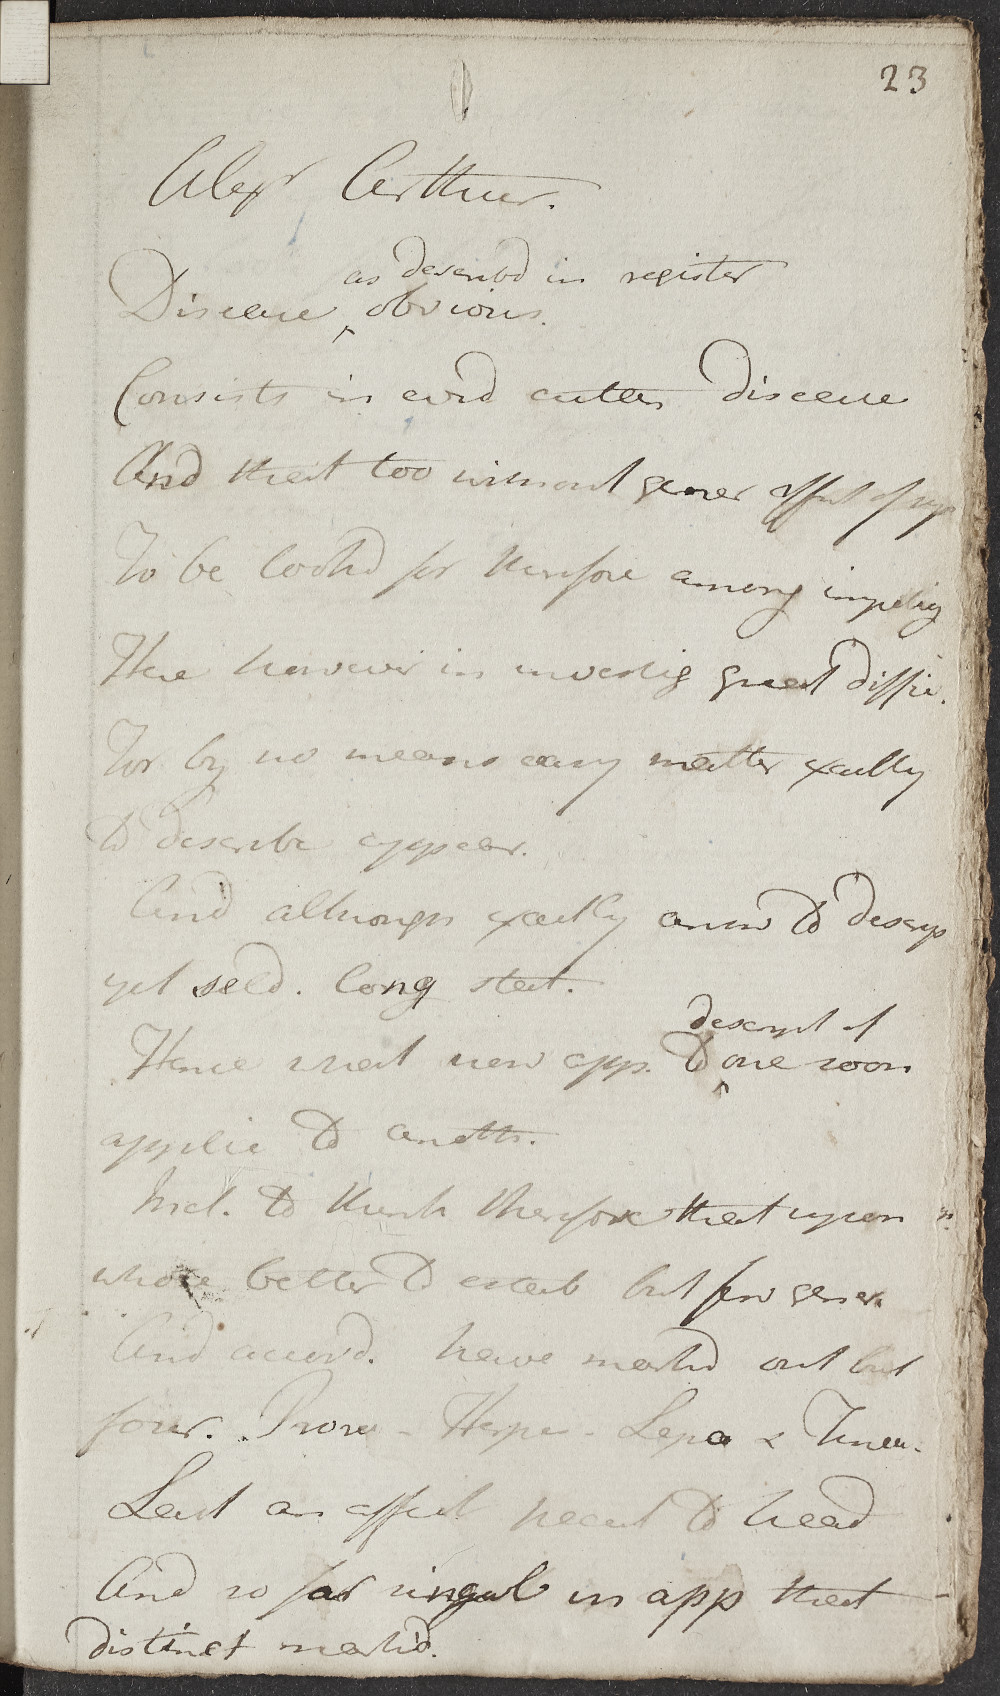 23
Alexr Arthur.
as describd in register
Disease ^ obvious.
Consists in evid cutan disease
And that too without gener affect of sys
To be lookd for therefore among impetig
Here however in investig great diffic.
For by no means easy matter exactly
to describe appear.
And although exactly answ to descrip
yet seld. long stat.
descript of
Hence what now app. to ^ one soon
applic to anoth.
Incl. to think therefore that upon
whole better to estab but few gener.
And accord. have markd out but
four. Psora - Herpe - Lepra & Tinea.
Last an affect pecul to head
And so far singul in app that
distinct markd.